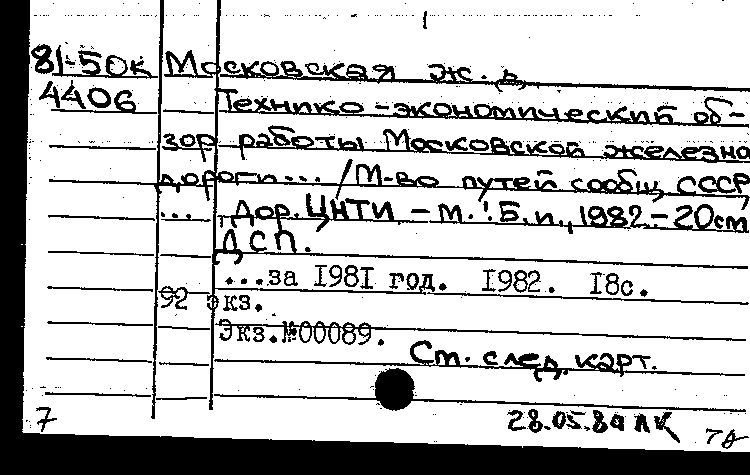 81-50к Московская ж. д.
4406 Технико-экономический об-
зор работы Московской железно
дороги... / М-во путей сообщ. СССР,
... Дор. ЦНТИ – М.: Б.и., 1982 – 20см
ДСП.
...за 1981 год. 1982. 18с.
92 экз.
Экз.№00089.
См. след. карт.
7 28.05.8